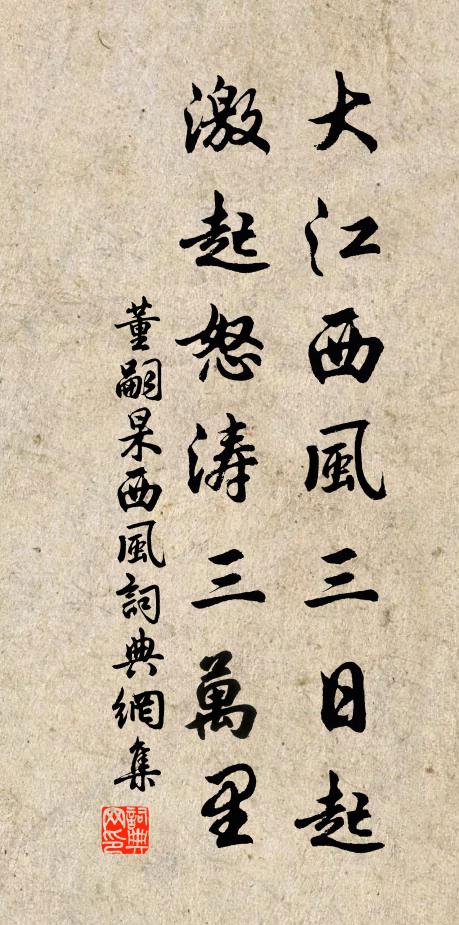 大江西風三日起
激起怒涛三萬里
董嗣杲西風詞典網集
詞典網印